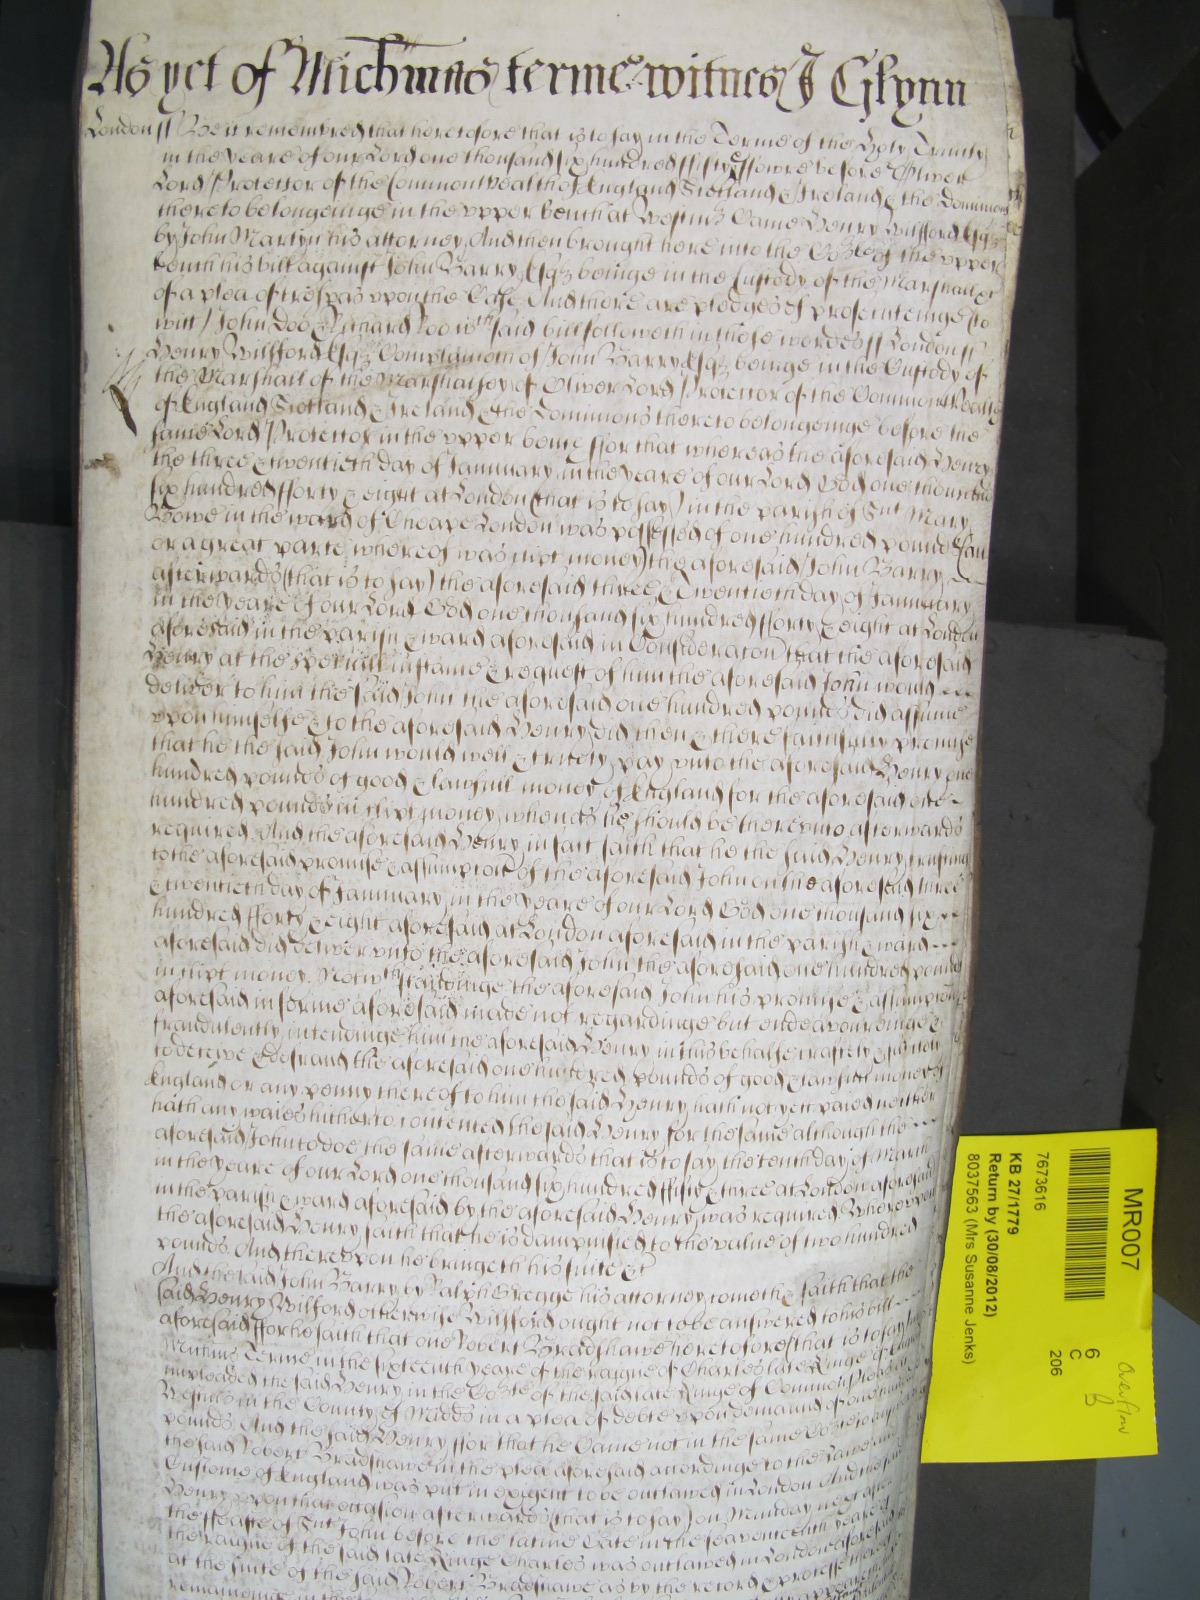 As yet of Mich'mas terme witnes J Glynn
London ss Be it remembred that heretofore that is to say in the Terme of the Holy Trinity
in the yeare of our Lord one thousand six hundred fifty & ffowre before Oliver
Lord Protector of the Commonwealth of England Scotland & Ireland & the Dominions
thereto belongeinge in the upper bench at Westm' Came Henry Wilford Esqr
by John Martyn his attorney And then brought here into the Co'te of the upper
bench his bill against John Barry Esqr beinge in the Custody of the Marshall &c
of a plea of trespas upon the Case And there are pledges of prosecuteinge to
witt John Doo & Richard Roo wch said bill followeth in those wordes ss London ss
Henry Willford Esqr Complaineth of John Barry Esqr beinge in the Custody of
the Marshall of the Marshalsey of Oliver Lord Protector of the Commonwealth
of England Scotland & Ireland & the Dominions thereto belongeinge before the
same Lord Protector in the upper bench ffor that whereas the aforesaid Henry
the three & twentieth day of January in the yeare of our Lord God one thousand
six hundred fforty & eight at London (that is to say) in the parish of Snt Mary
Bowe in the ward of Cheape London was possessed of one hundred pounds
or a great parte whereof was clipt money) the aforesaid John Barry
afterwards (that is to say) the aforesaid three & Twentieth day of January
in the yeare of our Lord God one thousand six hundred fforty & eight at London
aforesaid in the parish & ward aforesaid in Consideracon that the aforesaid
Henry at the speciall instance & request of him the aforesaid John would
deliver to him the said John the aforesaid one hundred pounds did assume
upon himselfe & to the aforesaid Henry did then & there faithfully promise
that he the said John would well & truely pay unto the aforesaid Henry one
hundred pounds of good & lawfull money of England for the aforesaid one
hundred pounds in clipt money when as he should be thereunto afterwards
required And the aforesaid Henry in fact saith that he the said Henry trusting
to the aforesaid promise & assumption of the aforesaid John on the aforesaid three
& twentieth day of January in the yeare of our Lord God one thousand six
hundred fforty & eight aforesaid at London aforesaid in the parish & ward
aforesaid did deliver unto the aforesaid John the aforesaid one hundred pounds
in clipt money Notwthstandinge the aforesaid John his promise & assumption
aforesaid in forme aforesaid made not regardinge but endeavouringe &
fraudulently intendinge him the aforesaid Henry in this behalfe craftely &
to deceive & defraud the aforesaid one hundred pounds of good & lawfull money of
England or any penny thereof to him the said Henry hath not yett paied neither
hath any waies hitherto contented the said Henry for the same although the
aforesaid John to doe the same afterwards that is to say the tenth day of March
in the yeare of our Lord one thousand six hundred fiftie & three at London aforesaid
in the parish & ward aforesaid by the aforesaid Henry was required Whereupon
the aforesaid Henry saith that he is dampnified to the value of two hundred
pounds And thereupon he bringeth his suite &c
And the said John Barry by Ralph Gregge his attorney cometh & saith that the
said Henry Wilford otherwise Willford ought not to be answered to his bill
aforesaid ffor he saith that one Robert Bradshawe heretofore (that is to say) in
Michms Terme in the sixteenth yeare of the raigne of Charles late Kinge of England
impleaded the said Henry in the Co'te of the said late Kinge of Common pleas at
Westm' in the County of Midds in a plea of debte upon demand of one hundred
pounds And the said Henry ffor that he Came not in the same Co'te to answere
the said Robert Bradshawe in the plea aforesaid accordinge to the Lawe and
Custome of England was put in exigent to be outlawed in London And the said
Henry upon that occasion afterwards (that is to say) on Munday next after
the feaste of Snt John before the latine Gate in the seaventeenth yeare of
the raigne of the said late Kinge Charles was outlawed in London aforesaid
at the suite of the said Robert Bradshawe as by the record & processe thereof
remaininge in the
MR007
7673616
KB 27/1779
Return by (30/08/2012)
8037563 (Mrs Susanne Jenks)
6
C
206
Overflow
B